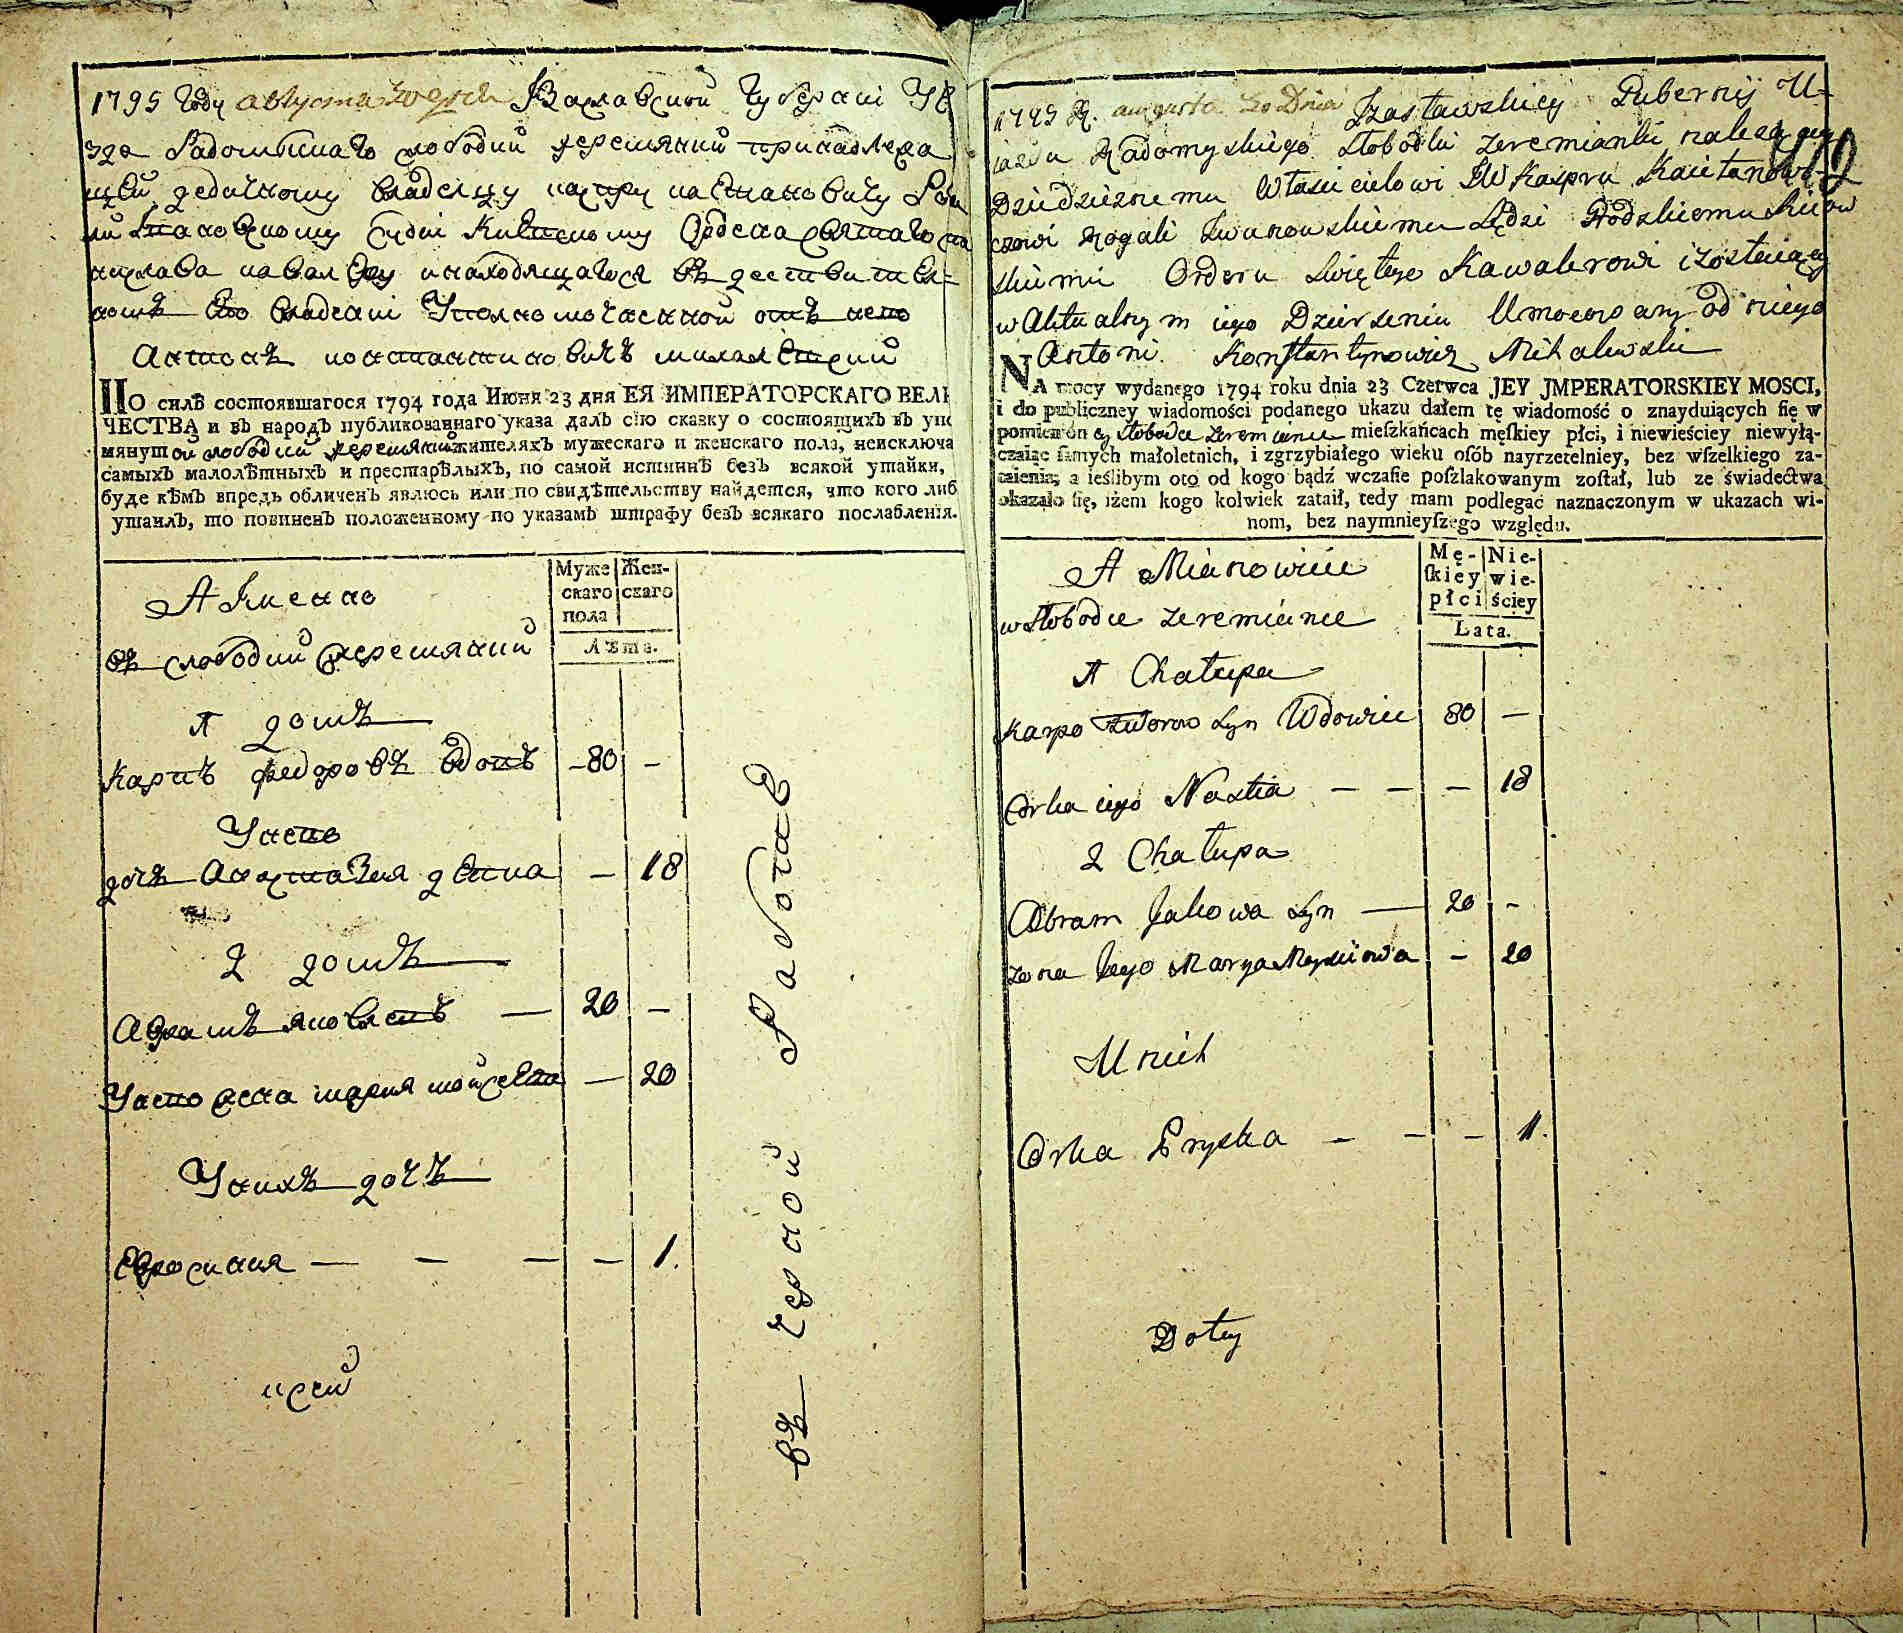 1795 году августа 30 дня Изяславской губерніи уе
зда Радомысльскаго слободки жеремянки принадлежа
щей дедичному владельцу каспру каетановичу
судіи Киевскому Ордена святаго ста
нислава кавалеру и находящагося въ действитель=
номъ его владеніи Уполномоченной отъ него
Антонъ констант­иновичъ михалевский
ПО силѣ состоявшагося 1794 года Июня 23 дня ЕЯ ИМПЕРАТОРСКАГО ВЕЛИ
ЧЕСТВА и въ народъ публикованнаго указа далъ сію сказку о состоящихъ въ упо
мянутой слободки жеремянки жителяхъ мужескаго и женскаго пола, неисключа
самыхъ малолѣтныхъ и престарѣлыхъ, по самой истиннѣ безъ всякой утайки,
буде кѣмъ впредь обличенъ явлюсь или по свидѣтельству найдется, что кого либ
утаилъ, то повиненъ положенному по указамъ штрафу безъ всякаго послабленія.
А Імено
въ слободки жеремянки
Муже
скаго
пола
Жен-
скаго
Лѣта.
1 домъ
Карпъ федоровъ вдовъ —80 —
У него
дочь Анастазия девка — 18
2 домъ
Аврамъ яковлевъ — 20 —
У него жена мария мойсеева — 20
У нихъ дочь
Евросиния — — — — 1.
въ черной Работае
1795 R. augusta 30 Dnia Izasławskiey Gubernij U=
iazdu Radomyskiego Słobodki Zeremianki należącey
Dziedzicznemu Włascicielowi JW Kaspru Kaietanowi=
czowi Rogali Iwanowskiemu Sędzi Grodzkiemu Kiiow
skiemu Orderu Swiętego Kawalerowi i zostaiącey
w Aktualnym iego Dzierzeniu Umocowany od niego
Antoni Konstantynowicz Mihalewski
NA mocy wydanego 1794 roku dnia 23 Czerwca JEY JMPERATORSKIEY MOSCI,
i do publiczney wiadomości podanego ukazu dałem tę wiadomość o znayduiących ſię w
pomienioney Słobodce Zeremiance mieſzkańcach męſkiey płci, i niewieściey niewyłą-
czaiąc ſamych małoletnich, i zgrzybiałego wieku oſób nayrzetelniey, bez wſzelkiego za-
taienia; a ieślibym oto od kogo bądź wczaſie poſzlakowanym zoſtał, lub ze świadectwa
okazało ſię, iżem kogo kolwiek zataił, tedy mam podlegać naznaczonym w ukazach wi-
nom, bez naymnieyſzego względu.
A Mianowicie
w Słobodce Zeremiance
Mę-
ſkiey
płci
Nie-
wie-
ściey
Lata.
1 Chałupa
Karpo Fedorow Syn Wdowiec 80 —
Corka iego Nastia — — — 18
2 Chałupa
Abram Jakowa Syn — 20 —
Zona Jego Marya Moysiiowa — 20
U nich
Corka Pryska — — — 1.